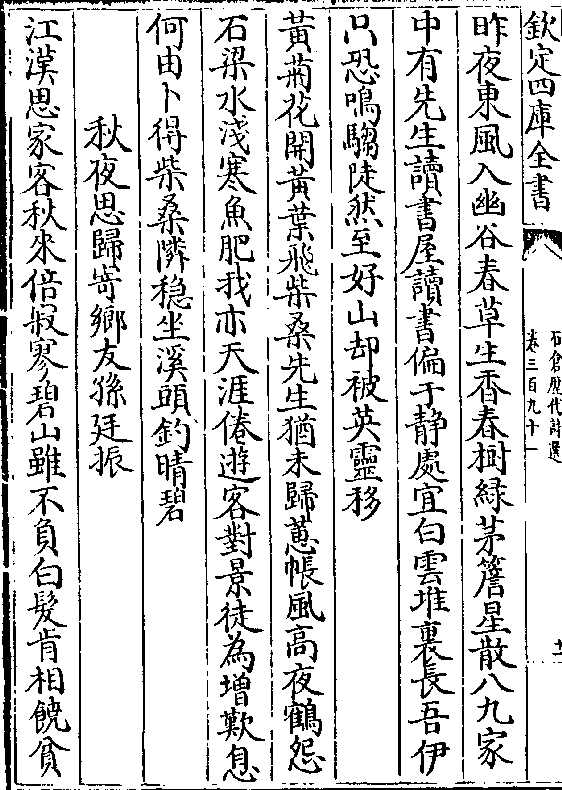 欽定四庫全書
石倉歷代詩選
卷三百九十一
昨夜東風入幽谷春草生香春樹緑茅簷星散八九家
中有先生讀書屋讀書偏于静處宜白雲堆裏長吾伊
只恐鳴騶陡然至好山却被英靈移
黃菊花開黃葉飛柴桑先生猶未歸蕙帳風高夜鶴怨
石梁水淺寒魚肥我亦天涯倦遊客對景徒為增歎息
何由卜得柴桑隣穏坐溪頭釣晴碧
秋夜思歸寄鄉友孫廷振
江漢思家客秋來倍寂寥碧山雖不負白髮肯相饒貧